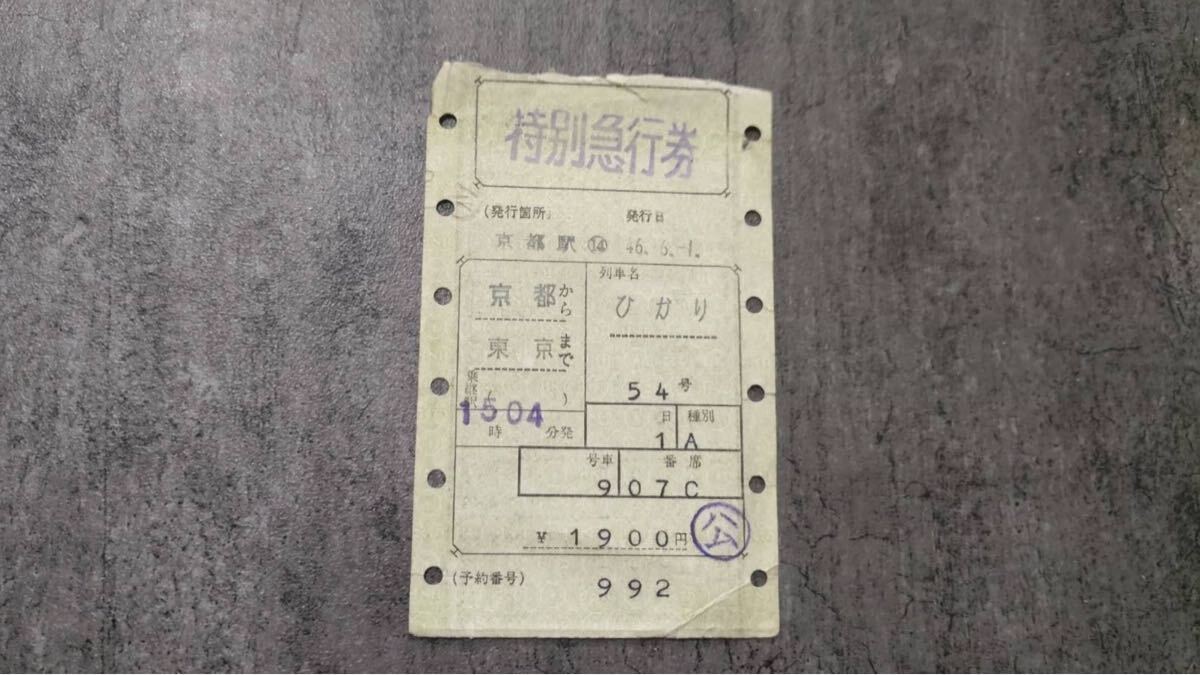 特別急行券
(発行箇所) 発行日
京都駅⑭ 46.6.-1.
列車名
京都から
ひかり
東京まで
54号
1504
時 分発
日 種別
1 A
号車 番席
9 07C
¥1900円
公
(予約番号)
992